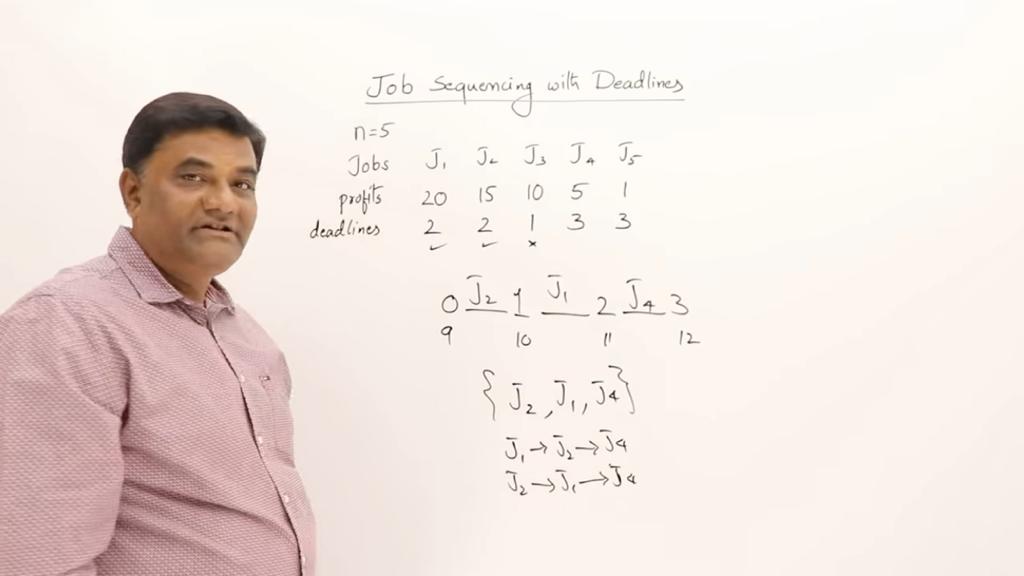 Job Sequencing with Deadlines
n=5
Jobs J1 J2 J3 J4 J5
profits 20 15 10 5 1
deadlines 2 2 1 3 3
✓ ✓ ×
0 J2 1 J1 2 J4 3
9 10 11 12
{J2, J1, J4}
J1→J2→J4
J2→J1→J4